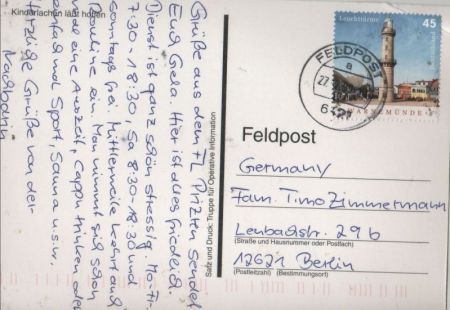 Kinderlachen läßt hoffen
Grüße aus dem FL Prizren sendet
Euch Gela. Hier ist alles friedlich.
Dienst ist ganz schön stressig. Mo-Fr.
7:30 - 18:30, Sa 8:30 - 18:30 und
sonntags frei. Mittlerweile kehrt auch
Routine ein. Man nimmt sich schon
mal eine Auszeit, Cappu trinken oder
einfach mal Sport, Sauna u.s.w.
Herzliche Grüße von der
Nachbarin
Satz und Druck: Truppe für Operative Information
Leuchttürme
45
Deutschland
WARNEMÜNDE
FELDPOST
a
27.
Feldpost
Germany
Fam. Timo Zimmermann
Lenbachstr. 29 b
(Straße und Hausnummer oder Postfach)
12621 Berlin
(Postleitzahl) (Bestimmungsort)